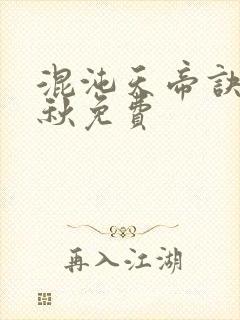 混沌天帝訣
秋免費
再入江湖